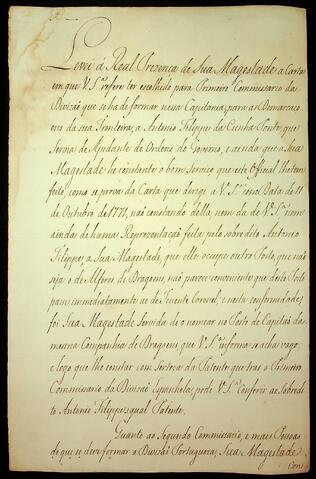 Levei á Real Prezença de Sua Magestade a Carta
em que V. S.ª refere ter escolhido para Primeiro Commissario da
Divizaõ que se ha de formar nessa Capitania, para as Demarcaço-
ens da sua Fronteira, a Antonio Filippe da Cunha Ponte, que
serve de Ajudante de Ordens do Governo, e ainda que a Sua
Magestade he constante o bom serviço que este Official lhe tem
feito, como se prova da Carta que dirigi a V. S.ª com Data de 11
de Outubro de 1771, naõ constando della, nem da de V. S.ª nem
ainda de huma Reprezentaçaõ feita pelo sobredito Antonio
Filippe, a Sua Magestade, que elle occupe outro Posto, que naõ
seja o de Alferes de Dragoens, naõ parece conveniente que deste Posto
passe immediatamente ao de Tenente Coronel, e nesta conformidade,
foi Sua Magestade Servida de nomear no Posto de Capitaõ da
mesma Companhia de Dragoens que V. S.ª informa se acha vago;
e logo que lhe constar com certeza da Patente que tras o Primeiro
Commissario da Divizaõ Espanhola, pode V. S.ª Conferir ao Sobredi-
to Antonio Filippe igual Patente.
Quanto ao Segundo Commissario, e mais Pessoas
de que se deve formar a Divizaõ Portugueza, Sua Magestade
Con-